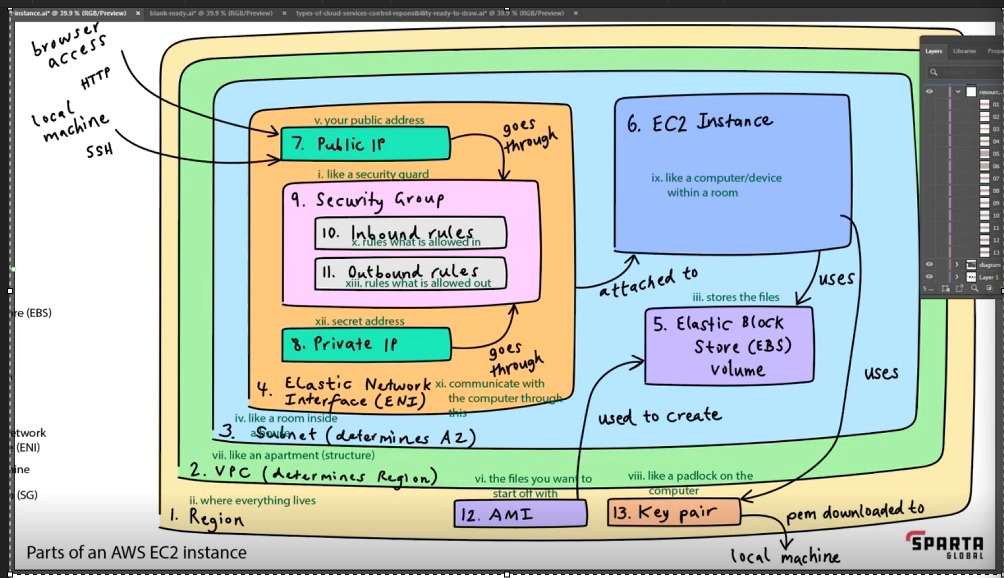 -instance.ai* @ 39.9 % (RGB/Preview) × blank-ready.ai* @ 39.9 % (RGB/Preview) × types-of-cloud-services-control-reponsibility-ready-to-draw.ai* @ 39.9 % (RGB/Preview) ×
browser
access
HTTP
local
machine
SSH
v. your public address
7. Public IP
goes
through
i. like a security guard
9. Security Group
10. Inbound rules
x. rules what is allowed in
11. Outbound rules
xiii. rules what is allowed out
xii. secret address
8. Private IP
goes
through
4. Elastic Network
Interface (ENI)
xi. communicate with
the computer through
this
6. EC2 Instance
ix. like a computer/device
within a room
attached to
uses
iii. stores the files
5. Elastic Block
Store (EBS)
volume
uses
used to create
iv. like a room inside
3. Subnet (determines AZ)
vii. like an apartment (structure)
2. VPC (determines Region)
ii. where everything lives
1. Region
vi. the files you want to
start off with
12. AMI
viii. like a padlock on the
computer
13. Key pair
pem downloaded to
local machine
re (EBS)
etwork
(ENI)
ine
(SG)
Parts of an AWS EC2 instance
SPARTA
GLOBAL
Layers Libraries Prope
resourc...
01
02
03
04
05
06
07
08
09
10
11
12
13
diagram
Layer 1
5...